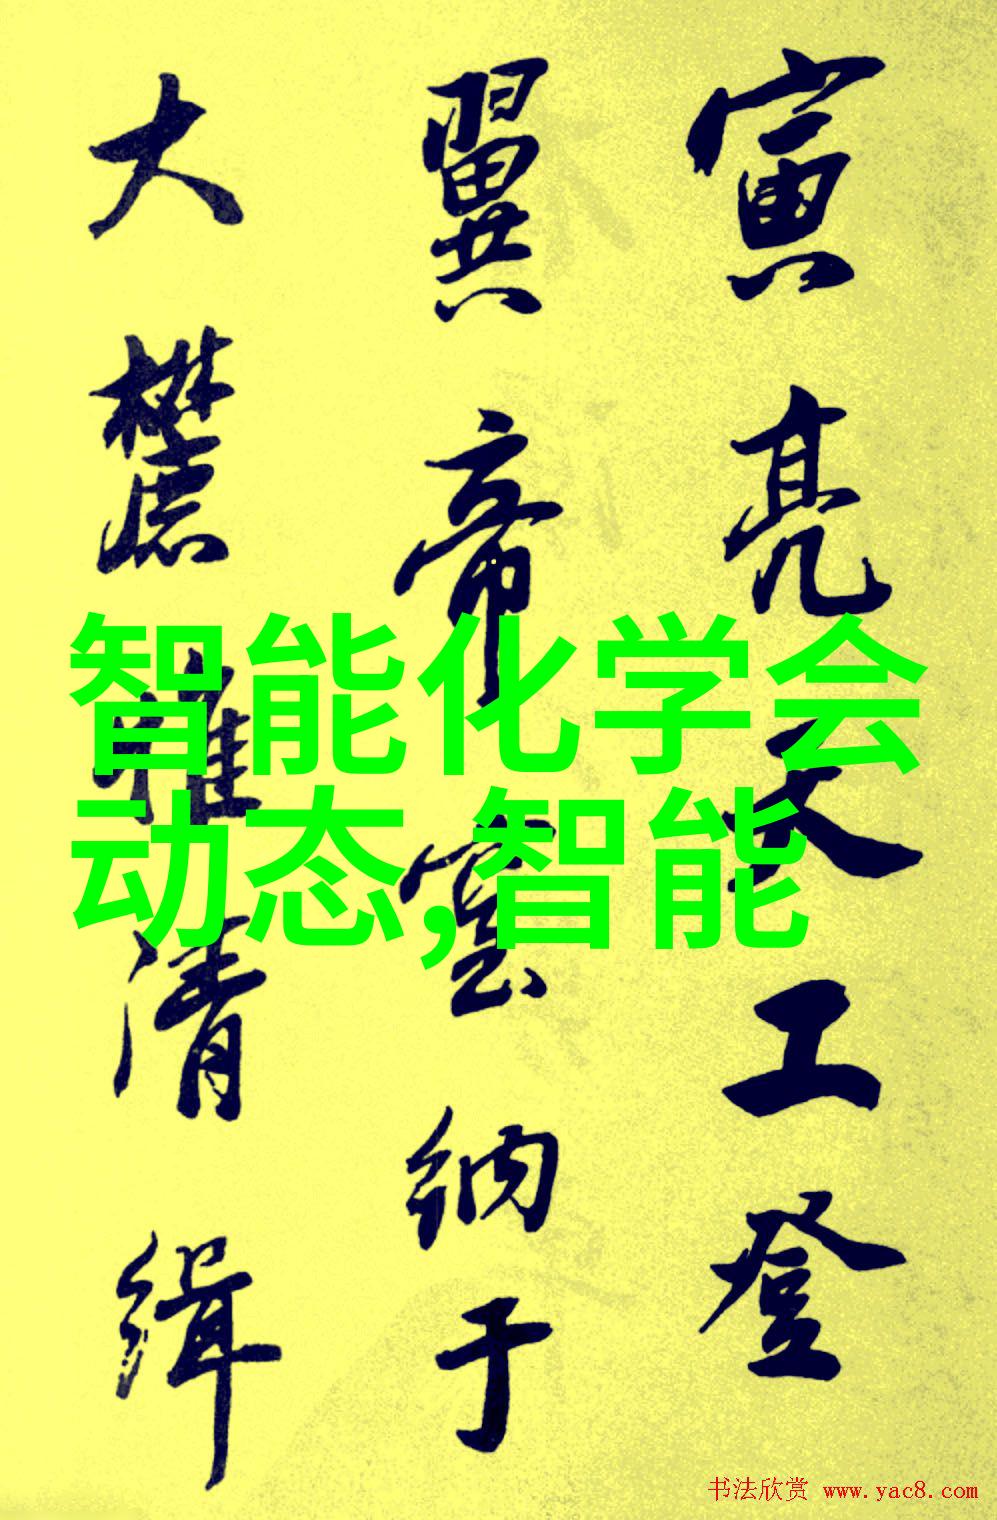 寅亮天工登
翼帝室納于
大麓雅清緝
智能化学会
动态,智能
书法欣赏 www.yac8.com